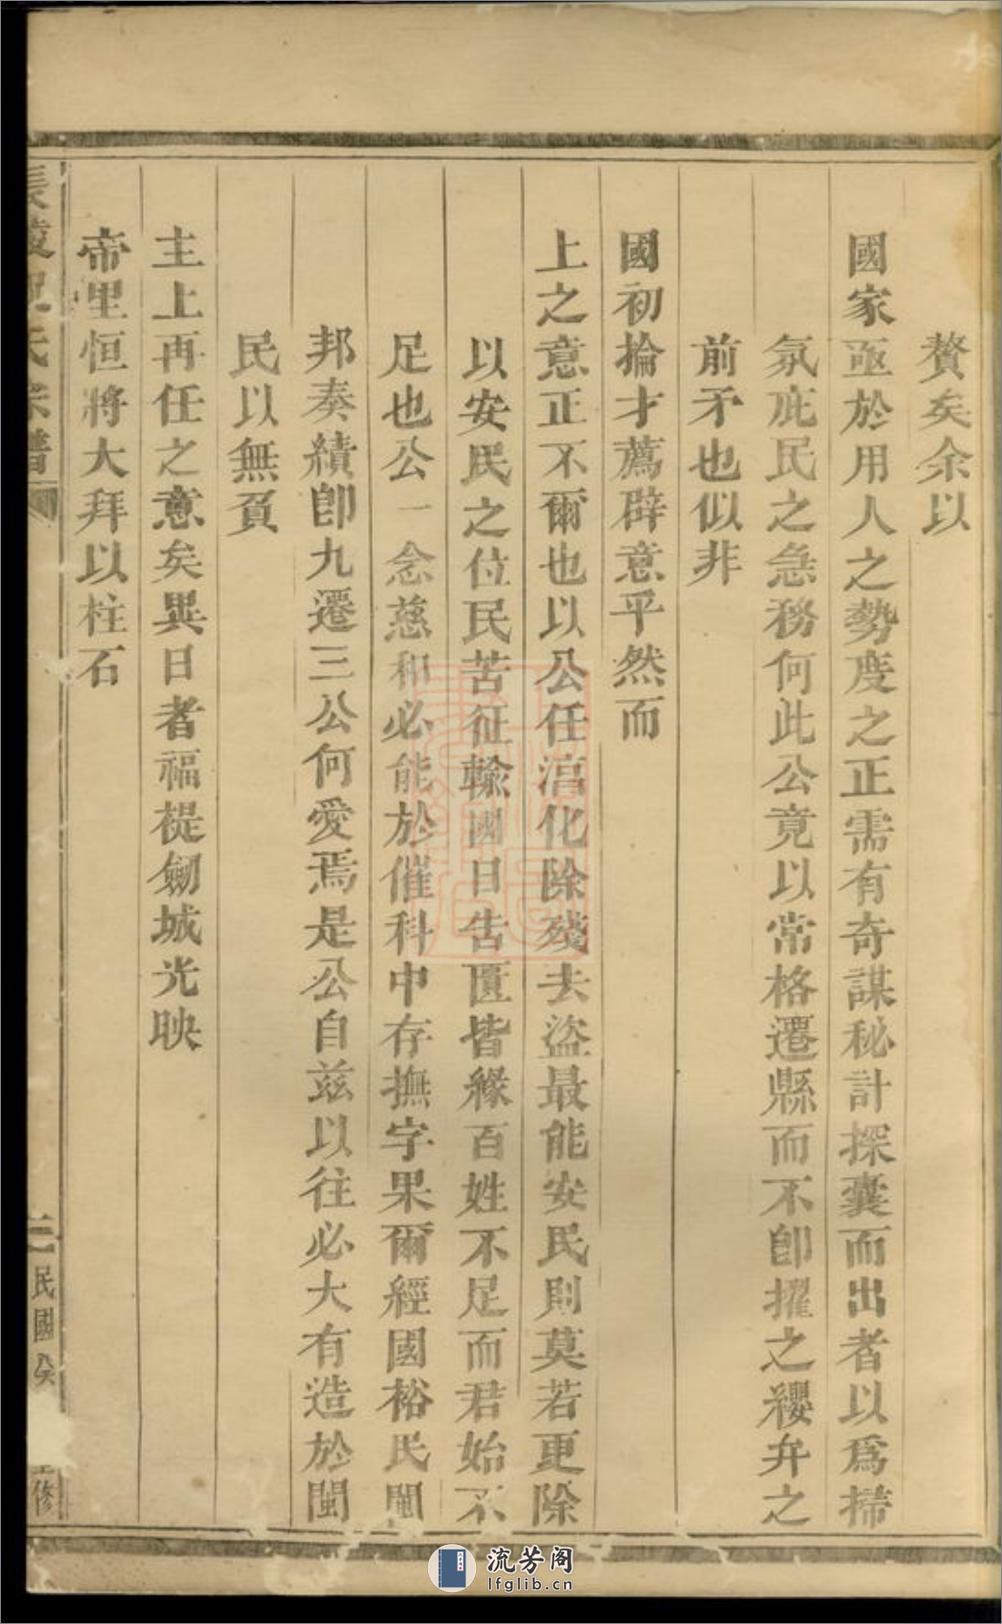 贅矣余以
國家亟於用人之勢度之正需有奇謀秘計探囊而出者以爲掃
氛庇民之急務何此公竟以常格遷縣而不卽擢之纓弁之
前矛也似非
國初掄才薦辟意乎然而
上之意正不爾也以公任淯化除殘去盜最能安民則莫若更除
以安民之位民苦征輸國日告匱皆緣百姓不足而君始不
足也公一念慈和必能於催科中存撫字果爾經國裕民閩
邦奏績卽九遷三公何愛焉是公自兹以往必大有造於閩
民以無負
主上再任之意矣異日者福禔劒城光映
帝里恒將大拜以柱石
氏宗譜
二 民國癸 修
流芳阁
lfglib.cn